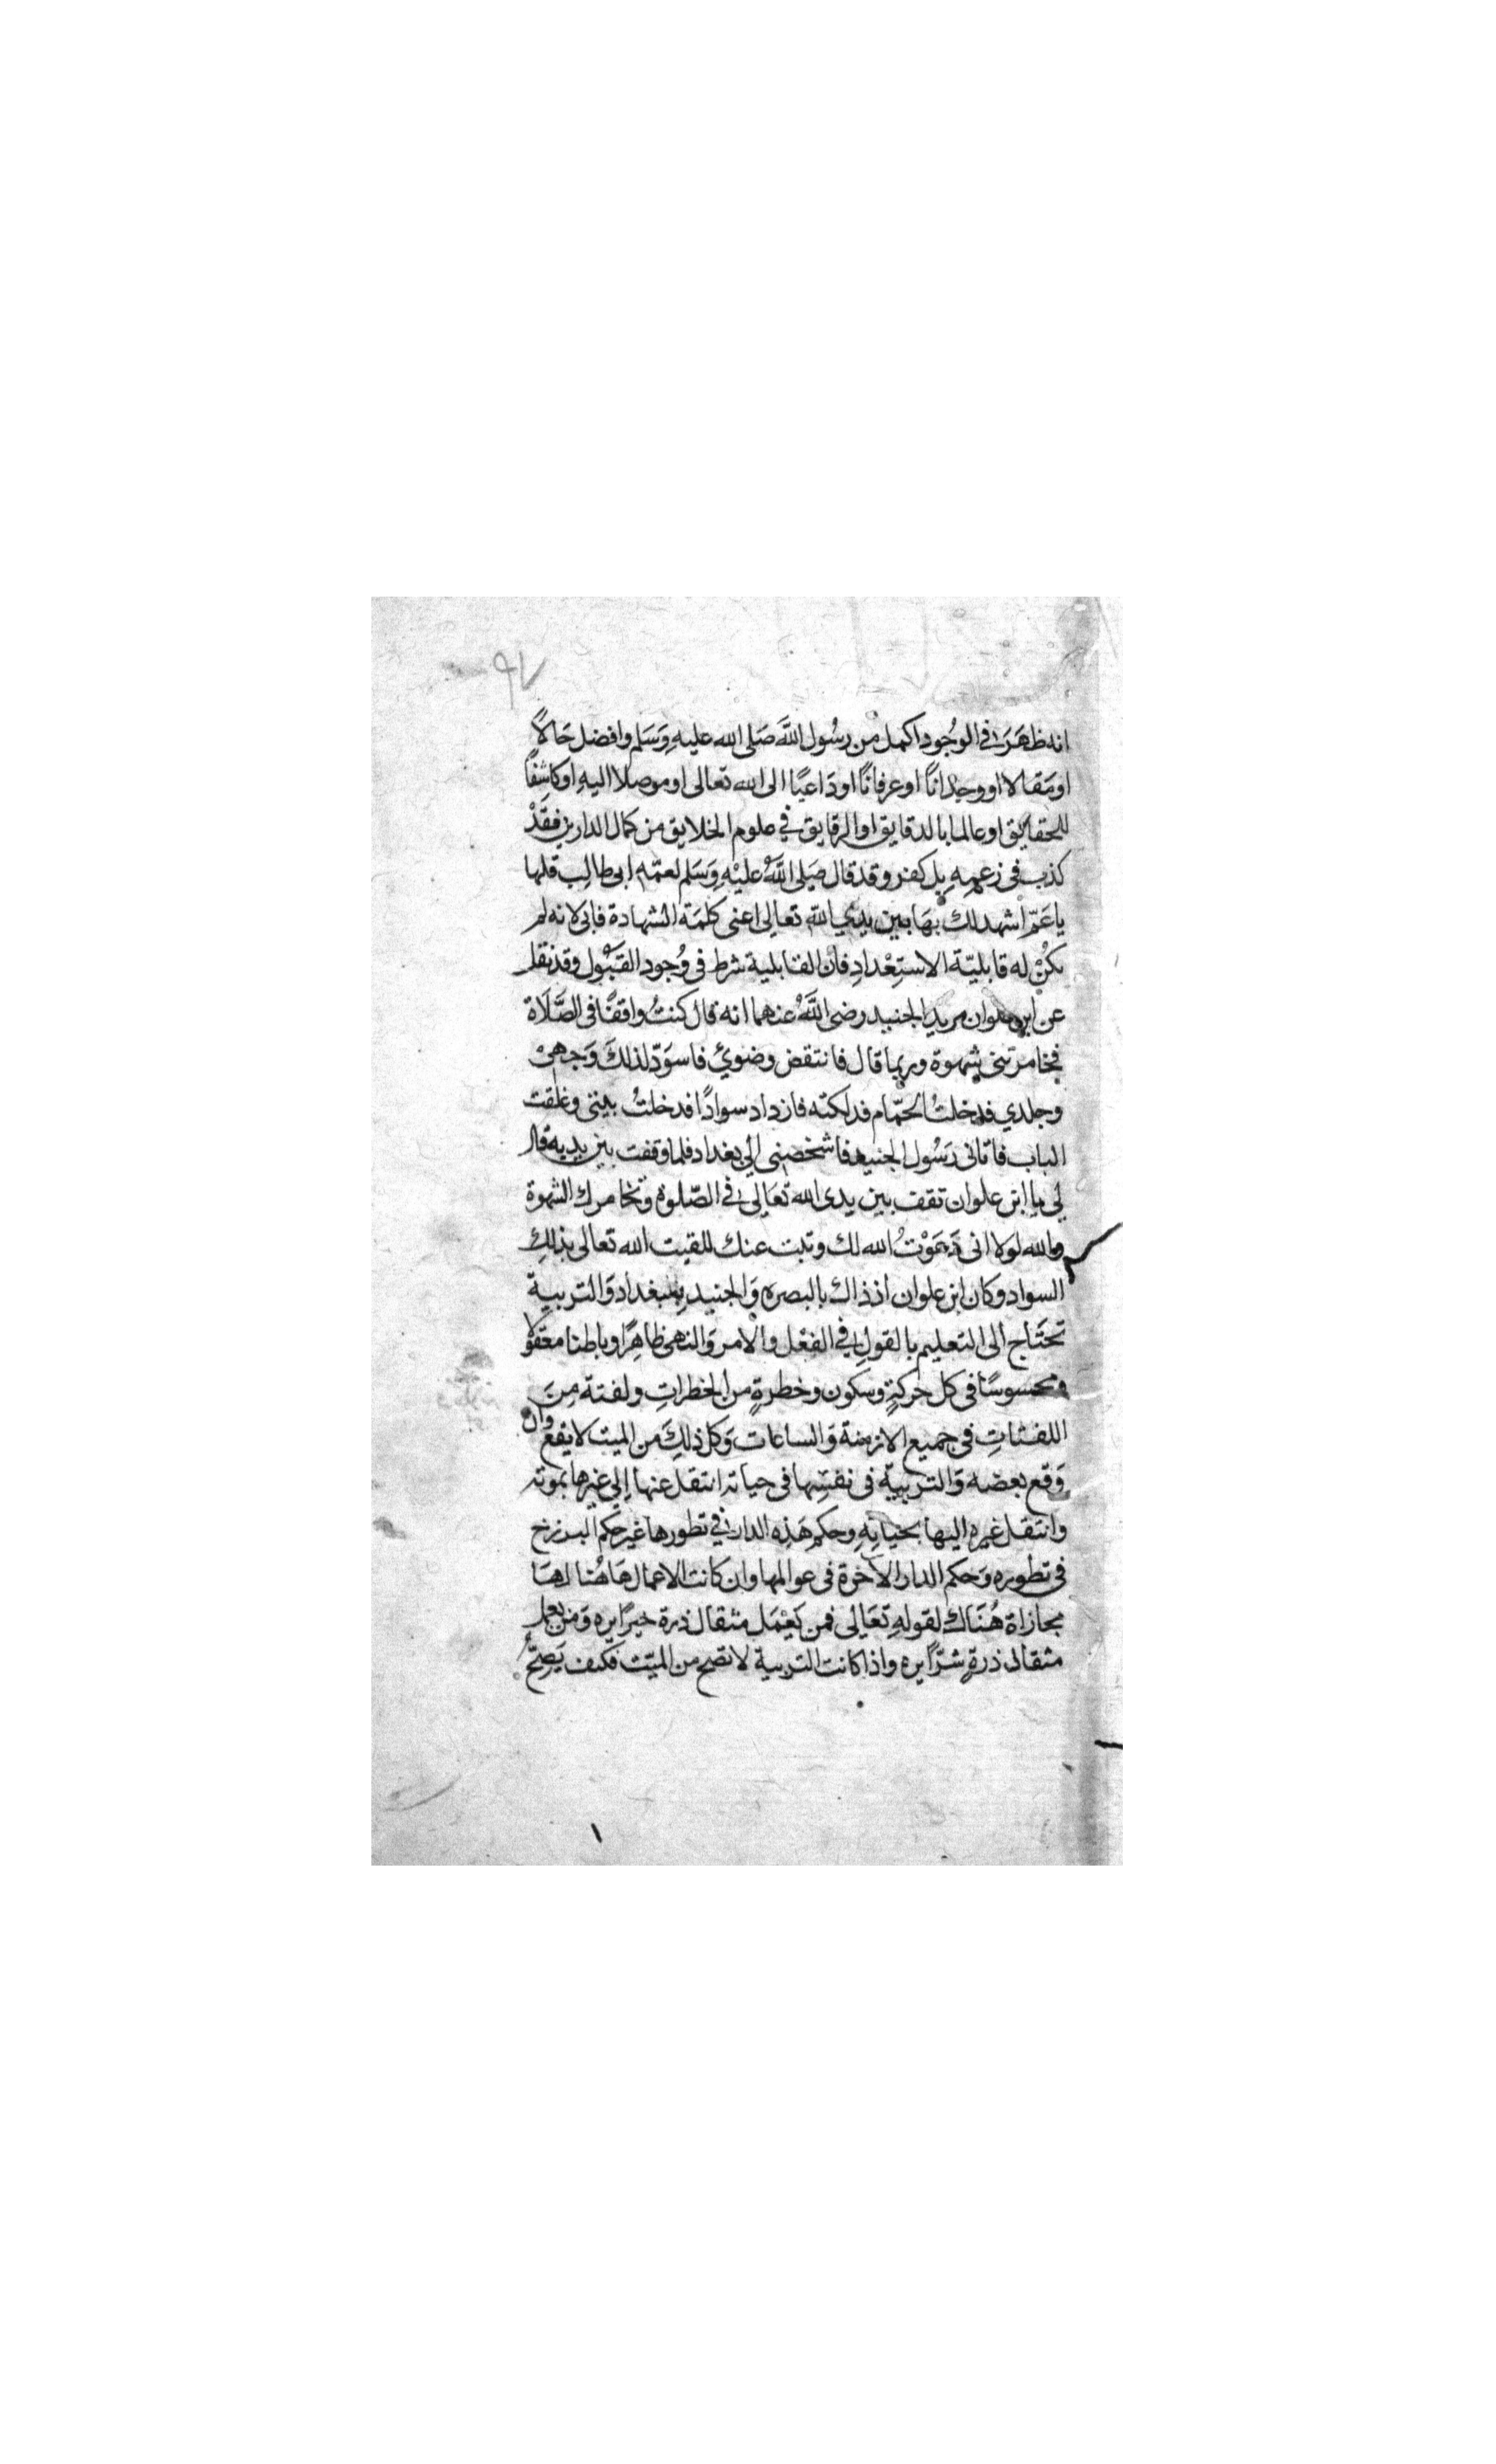 ٩٧
انه ظَهَرَ في الوُجُود اكمل من رسُول اللَّه صَلى الله عليهِ وَسَلم وافضل حَالاً
اومَقالا او وجدانًا اوعرفانًا اودَاعيًا الى الله تعالى اوموصلا اليهِ اوكاشِفًا
للحقايق اوعالما بالدقايق اوالرقايق في علوم الخلايق من كمال الدارين فقَدْ
كذب فى زعمِهِ بل كفر وقد قال صَلى اللَّهُ عليْهِ وَسَلم لعمّه ابى طالب قلها
ياعَمّ اشهد لك بهَا بين يدي الله تعالى اعنى كلمَة الشهادة فابى لانه لم
يكُنْ له قابليّة الاستِعْدادِ فأن القابلية شرط فى وُجود القبُول وقد نقل
عن ابن علوان مريد الجنيد رضى اللَّهُ عنهما انه قال كنتُ واقفًا فى الصَّلَاة
فخامرتنى شهوة وربما قال فانتقض وضوئ فاسوَدّ لذلكَ وَجهىْ
وجلدي فدخلتُ الحمّام فدلكته فازداد سوادًا فدخلتُ بيتى وغلقت
الباب فاتانى رَسُول الجنيد فاشخصنى الى بغداد فلما وقفت بين يديه قال
لي يا ابن علوان تقف بين يدى الله تعَالى فى الصّلوة وتخامرك الشهوة
والله لولا انى دَعَوْتُ الله لك وتبت عنك للقيت الله تعالى بذلك
السواد وكان ابن علوان اذذاك بالبصره وَالجنيد ببغداد وَالتربية
تحتَاج الى التعليم بالقول في الفعْل والامر وَالنهى ظاهِرًا وباطنا معقولا
ومحسوسًا فى كل حركةٍ وسكون وخطرةٍ من الخطراتِ ولفتة مِنَ
اللفتاتِ فى جميع الازمنة وَالساعات وَكل ذلِكَ من الميت لايقع وان
وَقع بعضه وَالتربيّة فى نفسِها فى حياته انتقل عنها إلى غيرها بموته
وانتقل غيره اليها بحياتِهِ وحكم هَذِه الدار في تطورها غير حكم البرزخ
فى تطوره وَحكم الدار الآخرة فى عوالمها وان كانت الاعمال هَاهُنا لهَا
مجازاة هُنَاك لقولهِ تعَالى فمن يَعْمَل مثقال ذرة خيرًا يره وَمن يعمل
مثقال ذرةٍ شرًّا يره واذا كانت التربية لاتصح من الميّت فكيف يَصِحُّ